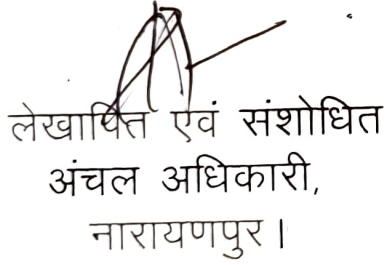 लेखापित एवं संशोधित
अंचल अधिकारी,
नारायणपुर।